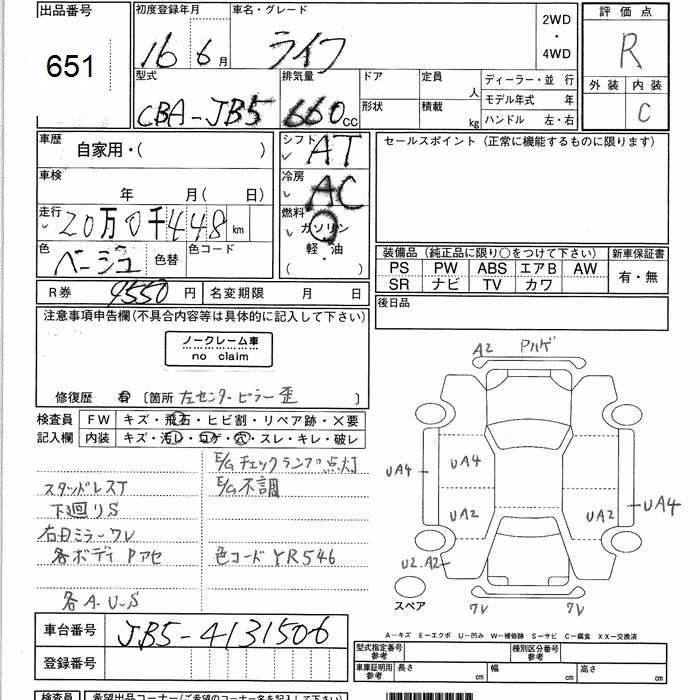 出品番号
651
初度登録年月
16 6月
車名・グレード
ライフ
2WD
・
4WD
評価点
R
外装 内装
C
型式
CBA-JB5
排気量
660cc
ドア
形状
定員
人
積載
kg
ディーラー・並 行
モデル年式 年
ハンドル 左・右
車歴
自家用・( )
車検
年 月( 日)
走行
20万0千448km
色
ベージュ
色替
色コード
シフト
AT
冷房
AC
燃料
ガソリン
軽・油
( )
セールスポイント(正常に機能するものに限ります)
装備品(純正品に限り○をつけて下さい)
新車保証書
PS PW ABS エアB AW
SR ナビ TV カワ
有・無
後日品
R券 9550円
名変期限 月 日
注意事項申告欄(不具合内容等は具体的に記入して下さい)
ノークレーム車
no claim
修復歴 有 〔箇所 左センターピラー歪 〕
検査員
記入欄
FW キズ・飛石・ヒビ割・リペア跡・×要
内装 キズ・汚レ・コゲ・穴・スレ・キレ・破レ
E/Gチェックランプ点灯
スタッドレスT
E/G不調
下廻りS
右Dミラーワレ
各ボディPアセ
色コードYR546
各A.U.S
A2 Pハゲ
UA4
UA4
UA2
UA2
UA4
U2.A2
スペア
ワレ
ワレ
車台番号
JB5-4131506
登録番号
A-キズ E-エクボ U-凹み W-補修跡 S-サビ C-腐食 XX-交換済
型式指定番号
参考
種別区分番号
参考
車庫証明用
参考
長さ cm
幅 cm
高さ cm
検査員
希望出品コーナー(ご希望のコーナー名を記入下さい)